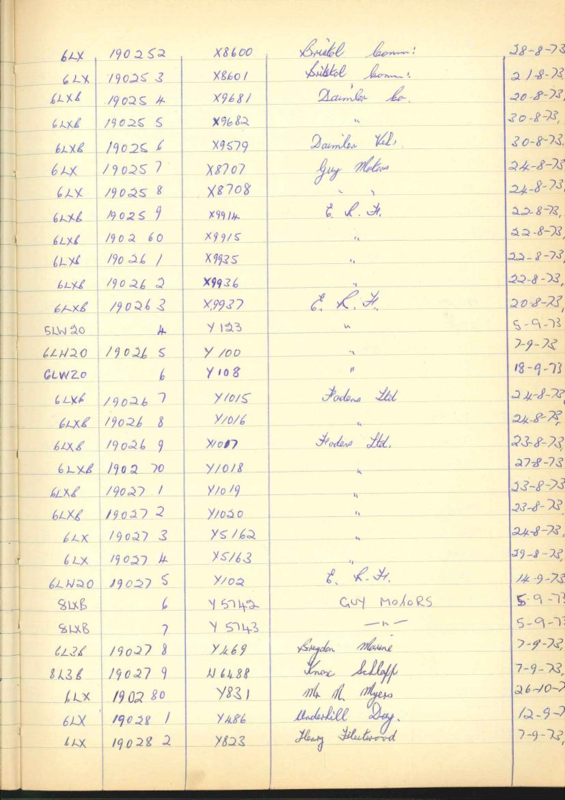 6LX 190252 X8600 Bristol Comm: 28-8-73
6LX 190253 X8601 Bristol Comm: 21-8-73
6LXB 190254 X9681 Daimler Co. 20-8-73,
6LXB 190255 X9682 " 30-8-73,
6LXB 190256 X9579 Daimler Veh: 30-8-73,
6LX 190257 X8707 Guy Motors 24-8-73,
6LX 190258 X8708 " " 24-8-73,
6LXB 190259 X9914 E. R. F. 22-8-73,
6LXB 190260 X9915 " 22-8-73,
6LXB 190261 X9935 " 22-8-73,
6LXB 190262 X9936 " 22-8-73,
6LXB 190263 X9937 E. R. F. 20-8-73,
5LW20 4 Y123 " 5-9-73
6LW20 190265 Y100 " 7-9-73
6LW20 6 Y108 " 18-9-73
6LXB 190267 Y1015 Fodens Ltd 24-8-73,
6LXB 190268 Y1016 " 24-8-73,
6LXB 190269 Y1017 Fodens Ltd. 23-8-73,
6LXB 190270 Y1018 " 27-8-73
6LXB 190271 Y1019 " 23-8-73,
6LXB 190272 Y1020 " 23-8-73,
6LX 190273 Y5162 " 24-8-73,
6LX 190274 Y5163 " 29-8-73,
6LW20 190275 Y102 E. R. F. 14-9-73
8LXB 6 Y5742 GUY MOTORS 5-9-7
8LXB 7 Y5743 —"— 5-9-7
6L3B 190278 Y469 Marine 7-9-73,
8L3B 190279 W6488 Knox Schlapp 7-9-73,
6LX 190280 Y831 Mr R. Myers 26-10-7
6LX 190281 Y486 Underhill Day. 12-9-7
6LX 190282 Y823 Henry Fleetwood 7-9-73,